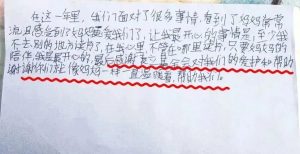 在这一年里，我们面对了很多事情，看到了妈妈常常
流且感会到了妈妈爱会我们了，让我最开心的事情是，至少我
不去别的地方读书，在我心里不管在哪里读书，只要妈妈的
陪伴，我是最开心的，最后感谢友 金会对我们的爱护和帮助
谢谢你们就像妈妈一样一直温暖着，帮助我们。